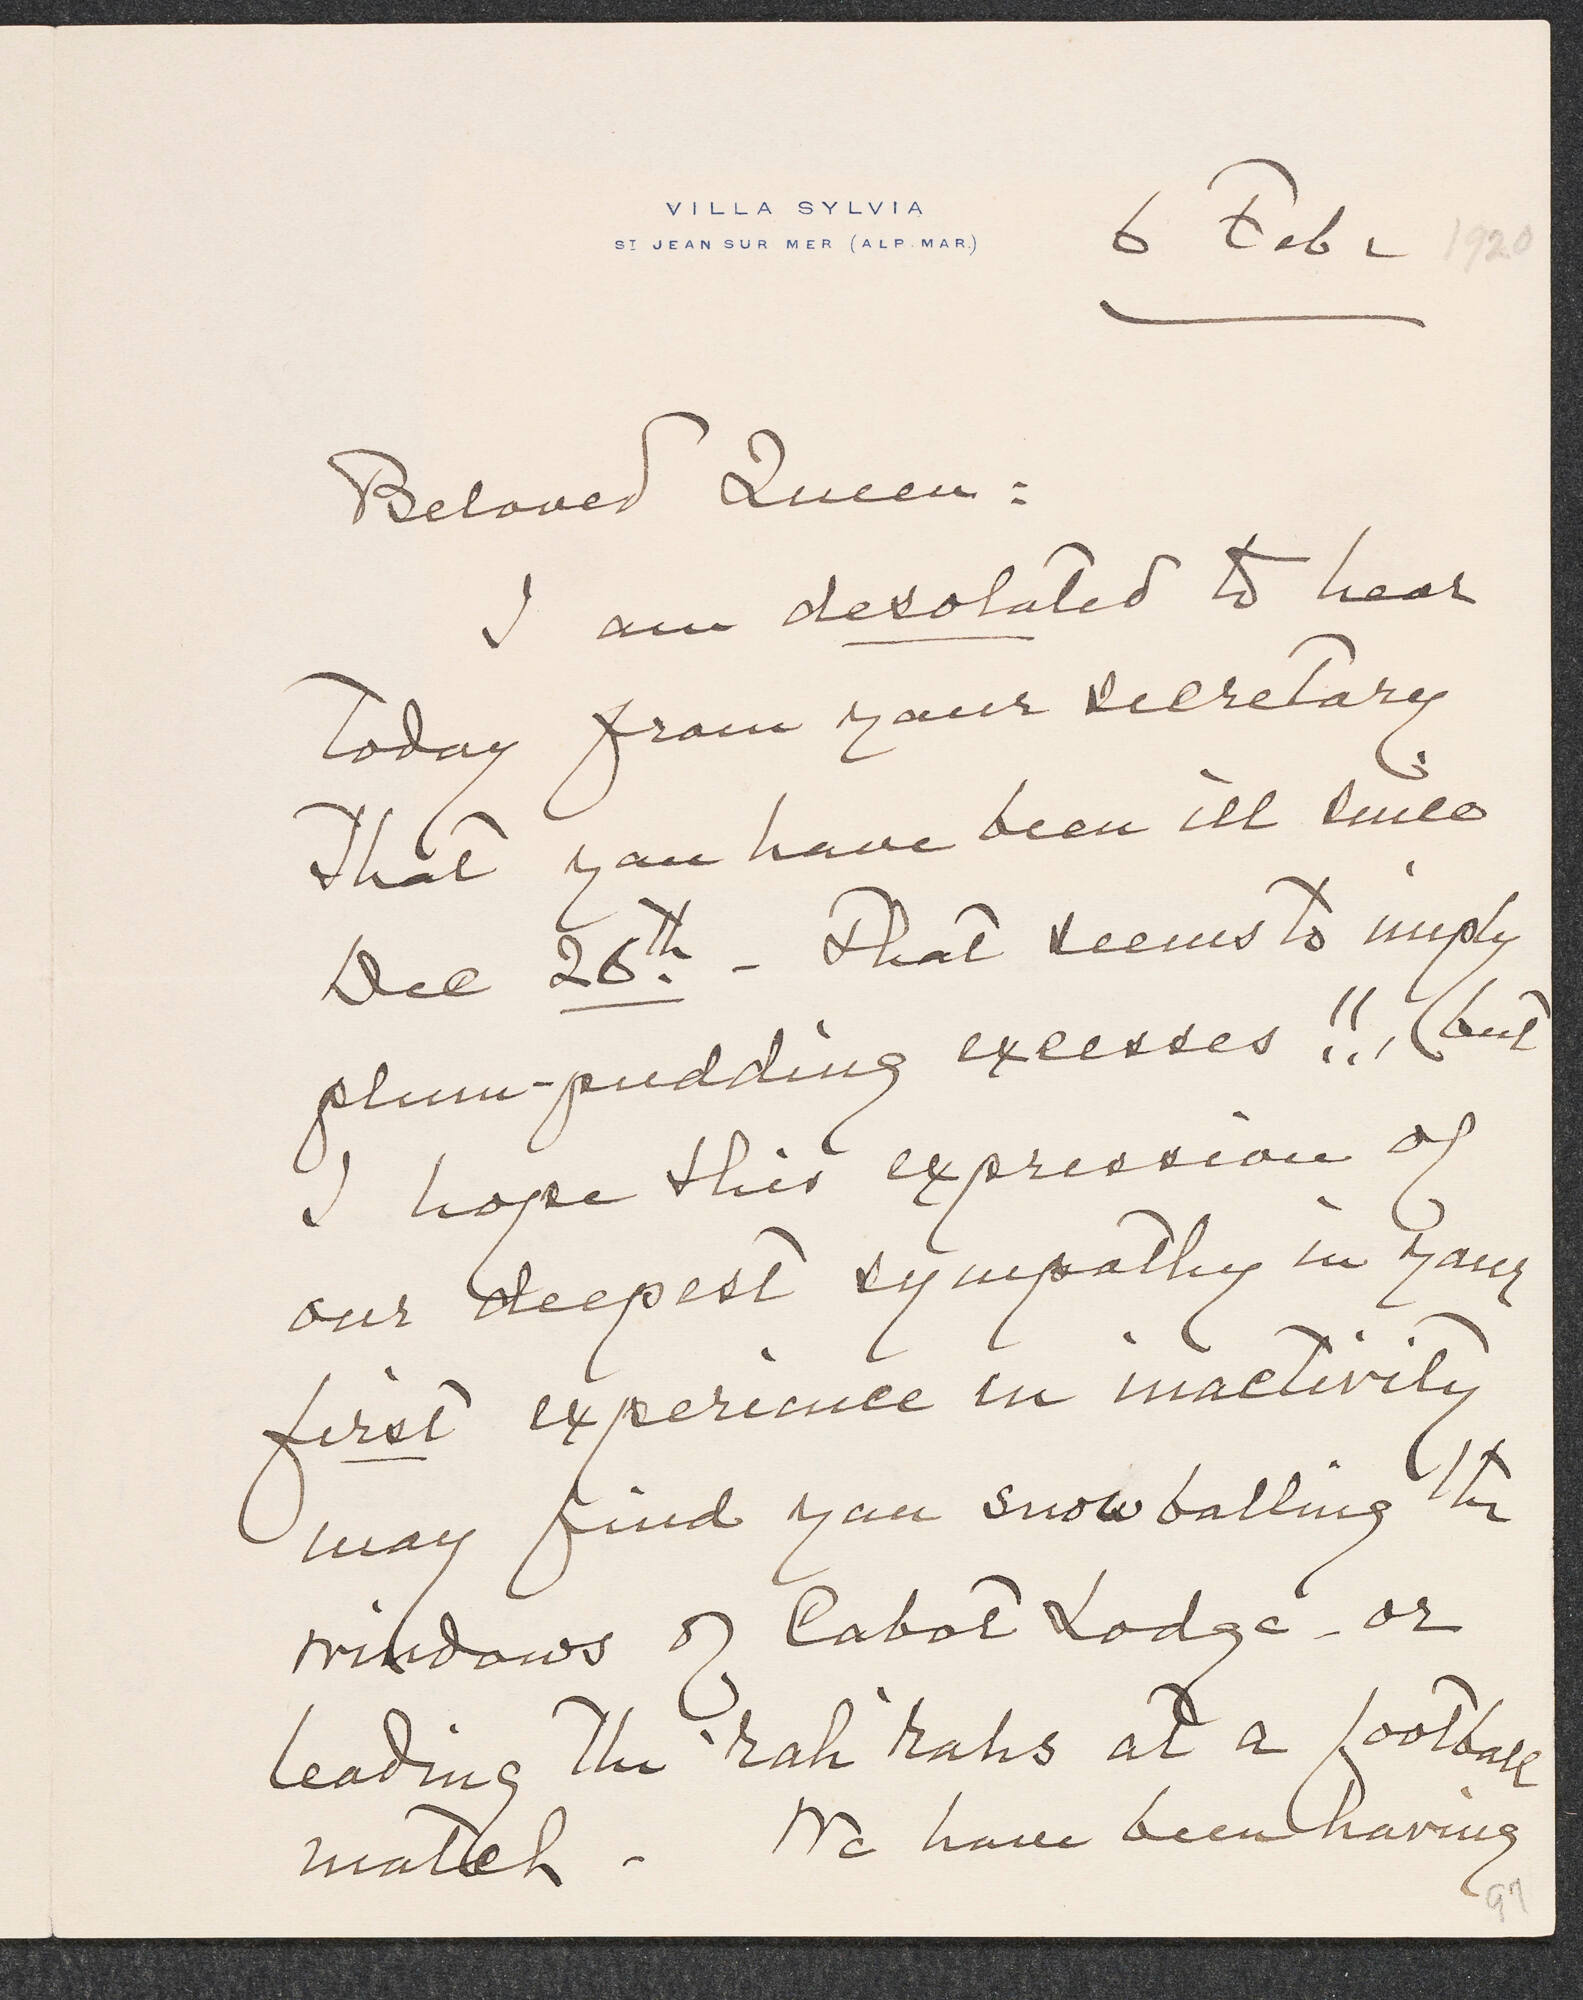 VILLA SYLVIA
ST JEAN SUR MER (ALP. MAR.)
6 Feb 1920
Beloved Queen:
I am desolated to hear
today from your secretary
that you have been ill since
Dec 26th. - That seems to imply
plum-pudding excesses!!, but
I hope this expression of
our deepest sympathy in your
first experience in inactivity
may find you snowballing the
windows of Cabot Lodge - or
leading the 'rah 'rahs at a football
match - We have been having
97